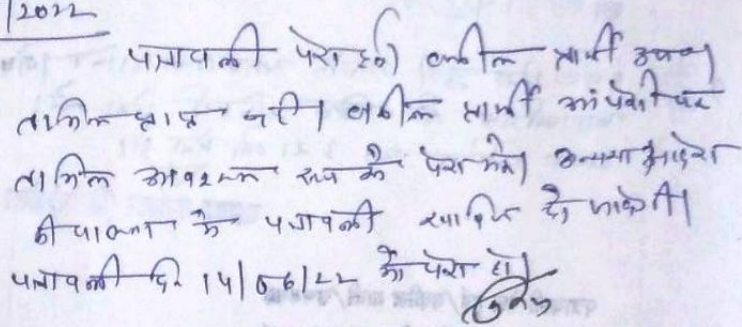 /2022
पत्रावली पेश हुई। वकील प्रार्थी उप०।
तामिल प्राप्त नही। वकील प्रार्थी आ० पेशी पर
तामिल आवश्यक रूप से पेश करे। अन्यथा आदेश
की पालना में पत्रावली खारिज हो जावेगी।
पत्रावली दि 14/06/22 को पेश हो।